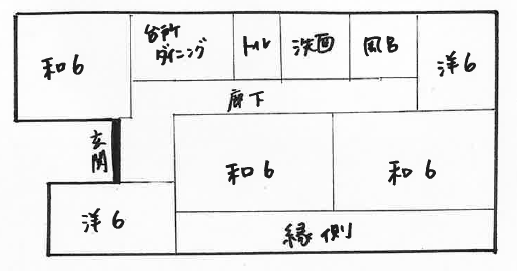 和6
台所
ダイニング
トイレ
洗面
風呂
洋6
廊下
玄関
和6
和6
洋6
縁側